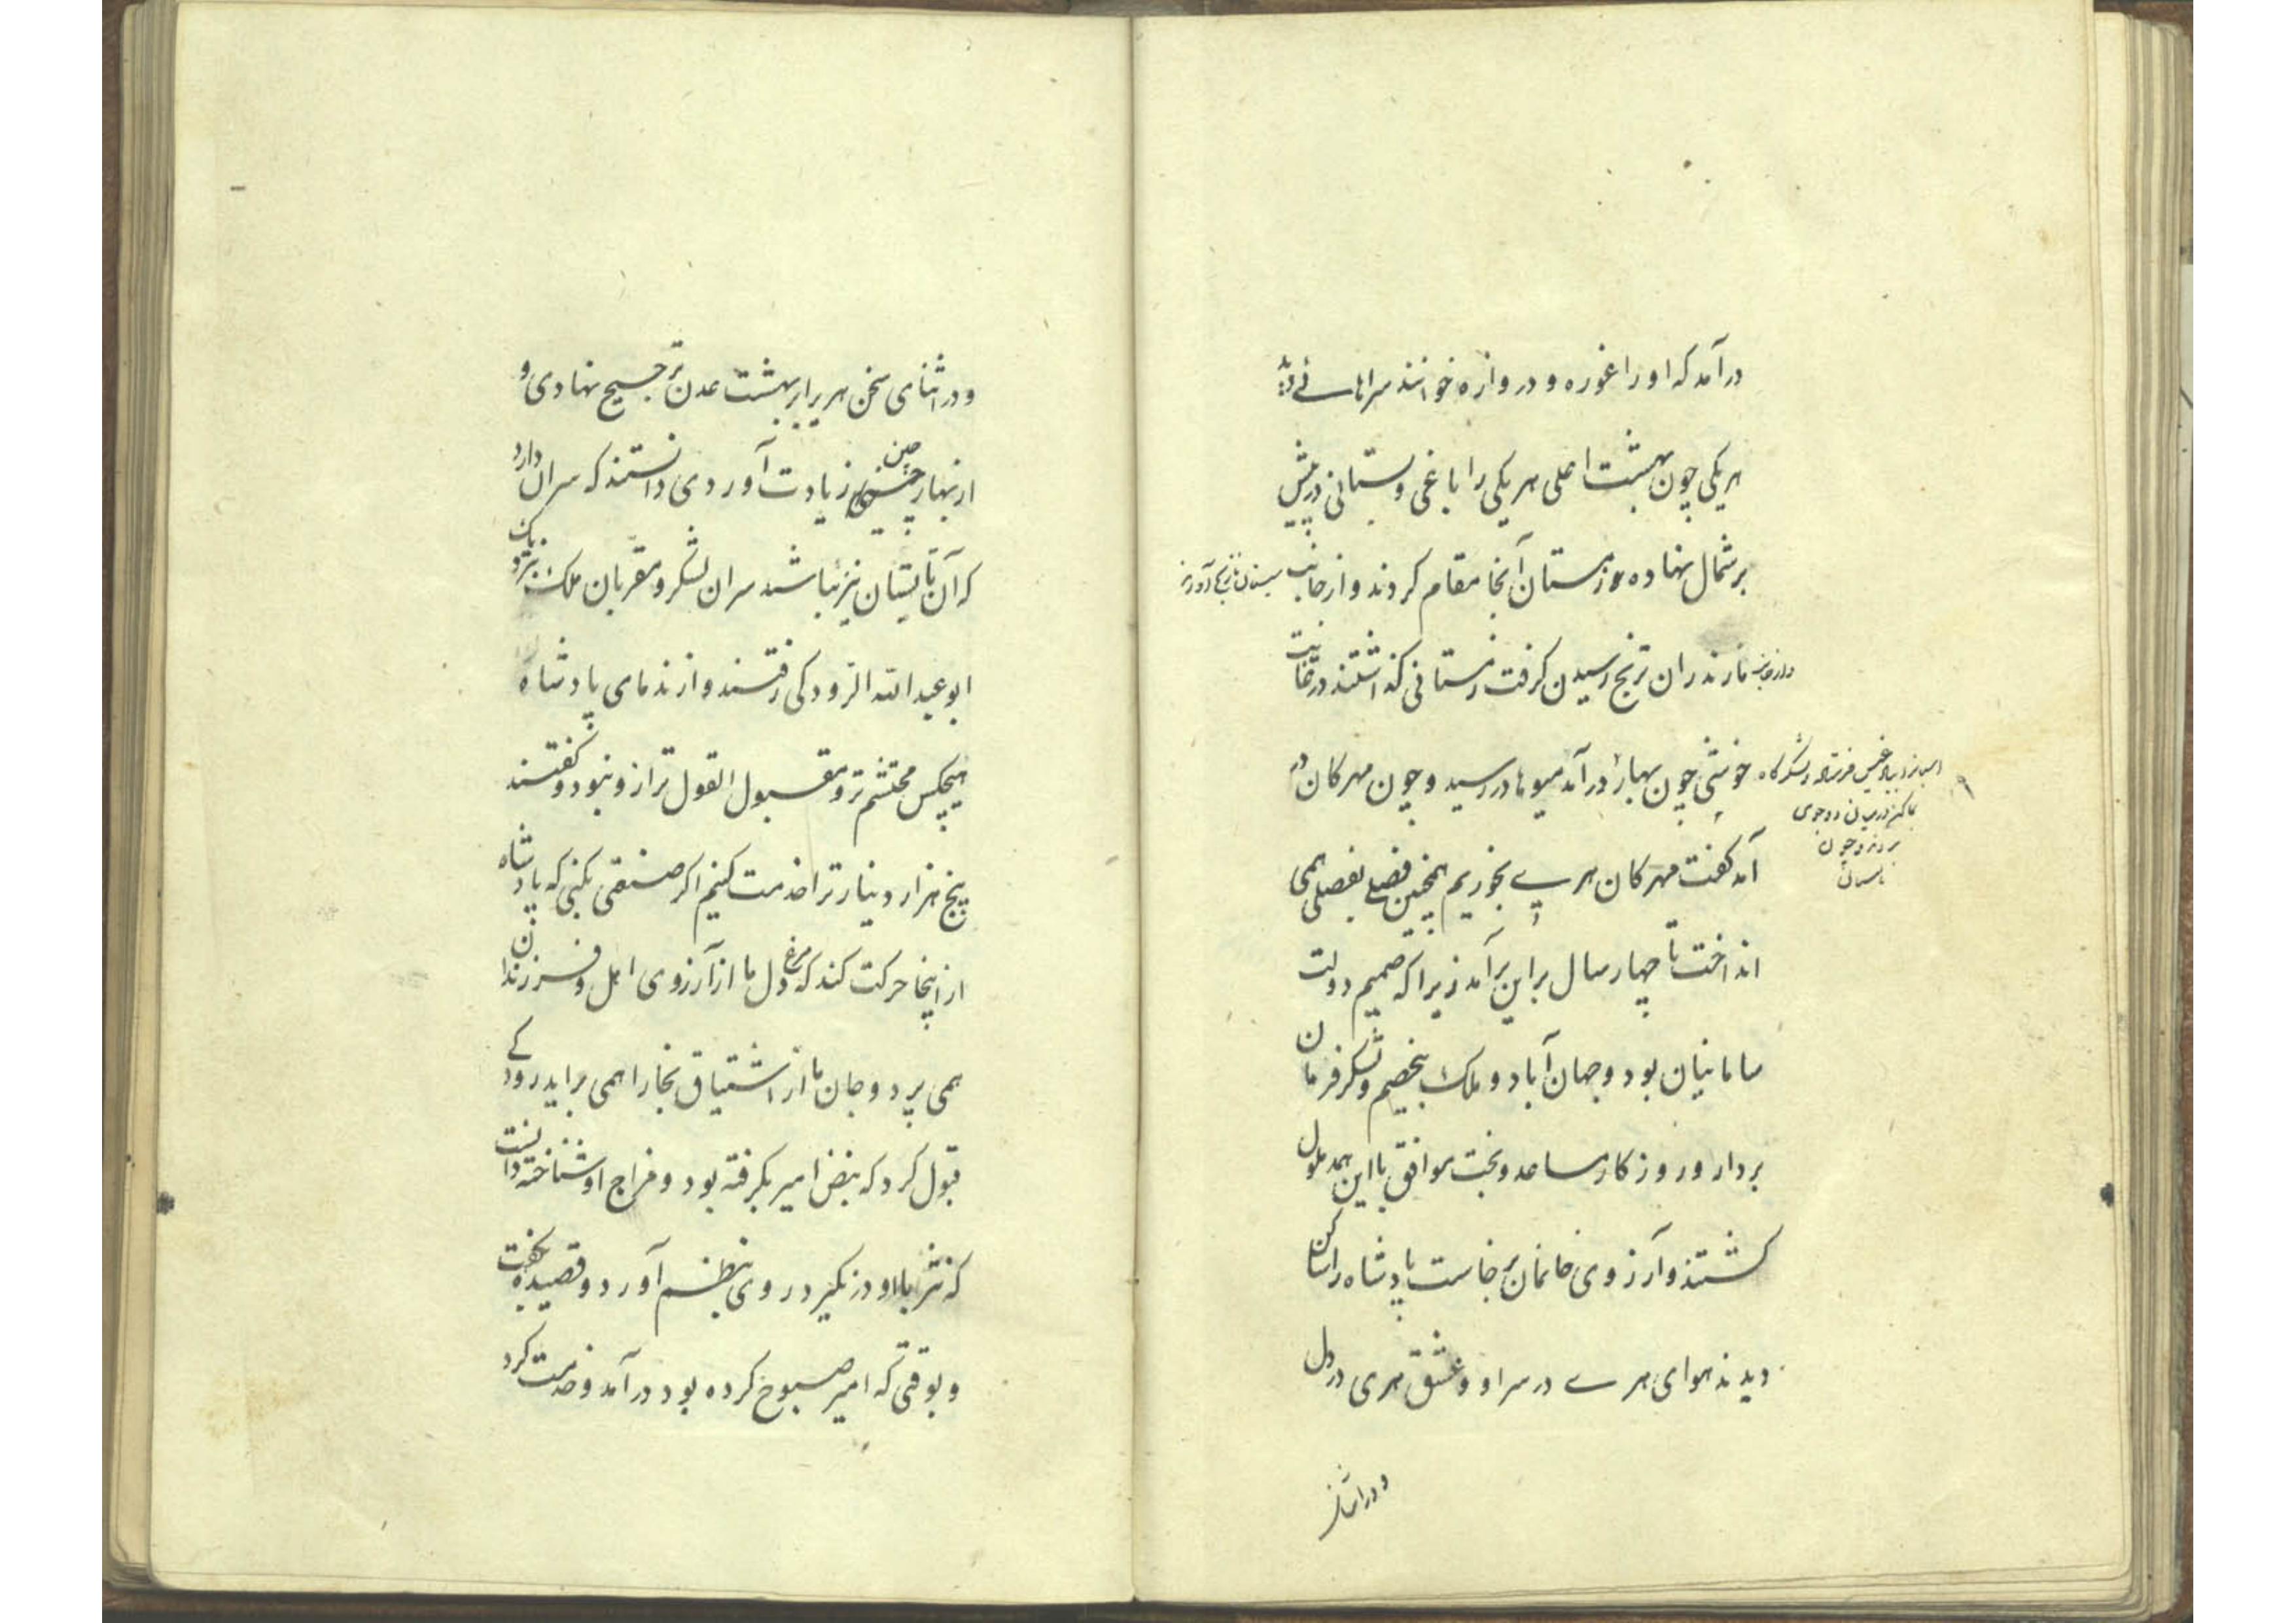 درآمد که او را غوره و دروازه خوانند سراهائی دید
هر یکی چون بهشت اعلی هر یکی را باغی و بستانی در پیش
بر شمال نهاده زمستان آنجا مقام کردند و از جانب
سیستان نارنج آوردن
مازندران ترنج رسیدن گرفت زمستانی گذاشتند در غایت
خوشی چون بهار درآمد میوها در رسید و چون مهرکان در
آمد گفت مهرکان هری بخوریم همچنین فصلی بفصلی همی
انداخت تا چهار سال برین برآمد زیرا که صمیم دولت
سامانیان بود و جهان آباد و ملک بیخصم و لشکر فرمان
بردار و روزکار مساعد و بخت موافق با این همه ملول
گشتند و آرزوی خانمان برخاست پادشاه را ساکن
دیدند هوای هری در سر او و عشق هری در دل
و در اثنای
و در اثنای سخن هری را بر بهشت عدن ترجیح نهادی و
از بهار چین زیادت آوردی دانستند که سر آن دارد
که آن تابستان نیز باشد سران لشکر و مقربان ملک نزدیک
ابو عبدالله الرودکی رفتند و از ندمای پادشاه
هیچکس محتشم تر و مقبول القول تر ازو نبود و گفتند
پنج هزار دینار ترا خدمت کنیم اکر صنعتی بکنی که پادشاه
از اینجا حرکت کند که مرغ دل ما از آرزوی اهل و فرزندان
همی برد و جان ما از اشتیاق بخارا همی براید رودکی
قبول کرد که نبض امیر بکرفته بود و مزاج او شناخته دانست
که نثر با او در نکیرد روی بنظم آورد و قصیده بگفت
و بوقتی که امیر صبوح کرده بود درآمد و خدمت کرد